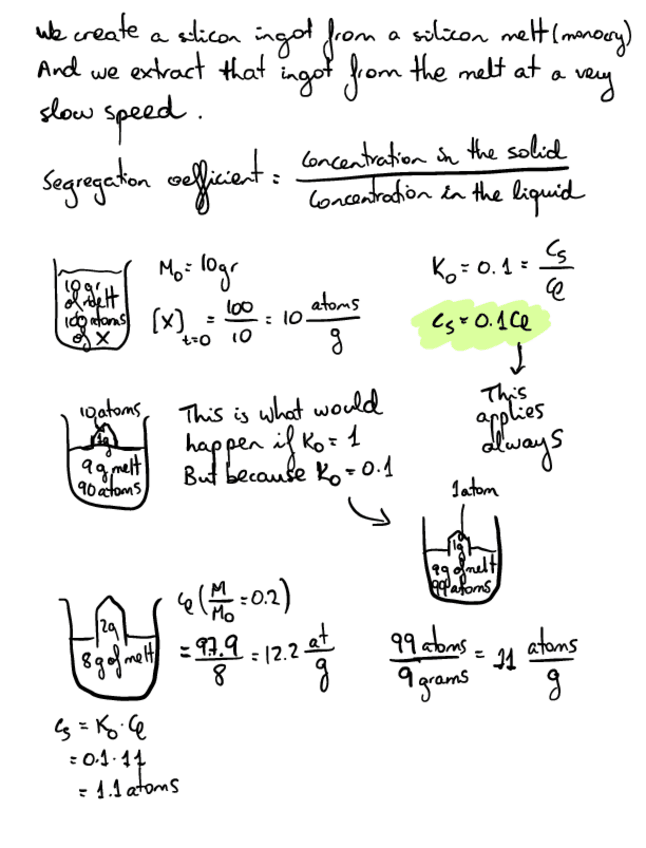 We create a silicon ingot from a silicon melt (monocry)
And we extract that ingot from the melt at a very
slow speed.
Segregation coefficient = Concentration in the solid / Concentration in the liquid
10 gr
of melt
100 atoms
of X
M₀ = 10gr
[X] t=0 = 100/10 = 10 atoms/g
K₀ = 0.1 = Cs/Cl
Cs = 0.1Cl
This
applies
always
10 atoms
1g
9 g melt
90 atoms
This is what would
happen if K₀ = 1
But because K₀ = 0.1
1 atom
1g
9g of melt
99 atoms
2g
8 g of melt
Cl (M/M₀ = 0.2)
= 97.9/8 = 12.2 at/g
99 atoms/9 grams = 11 atoms/g
Cs = K₀ · Cl
= 0.1 · 11
= 1.1 atoms